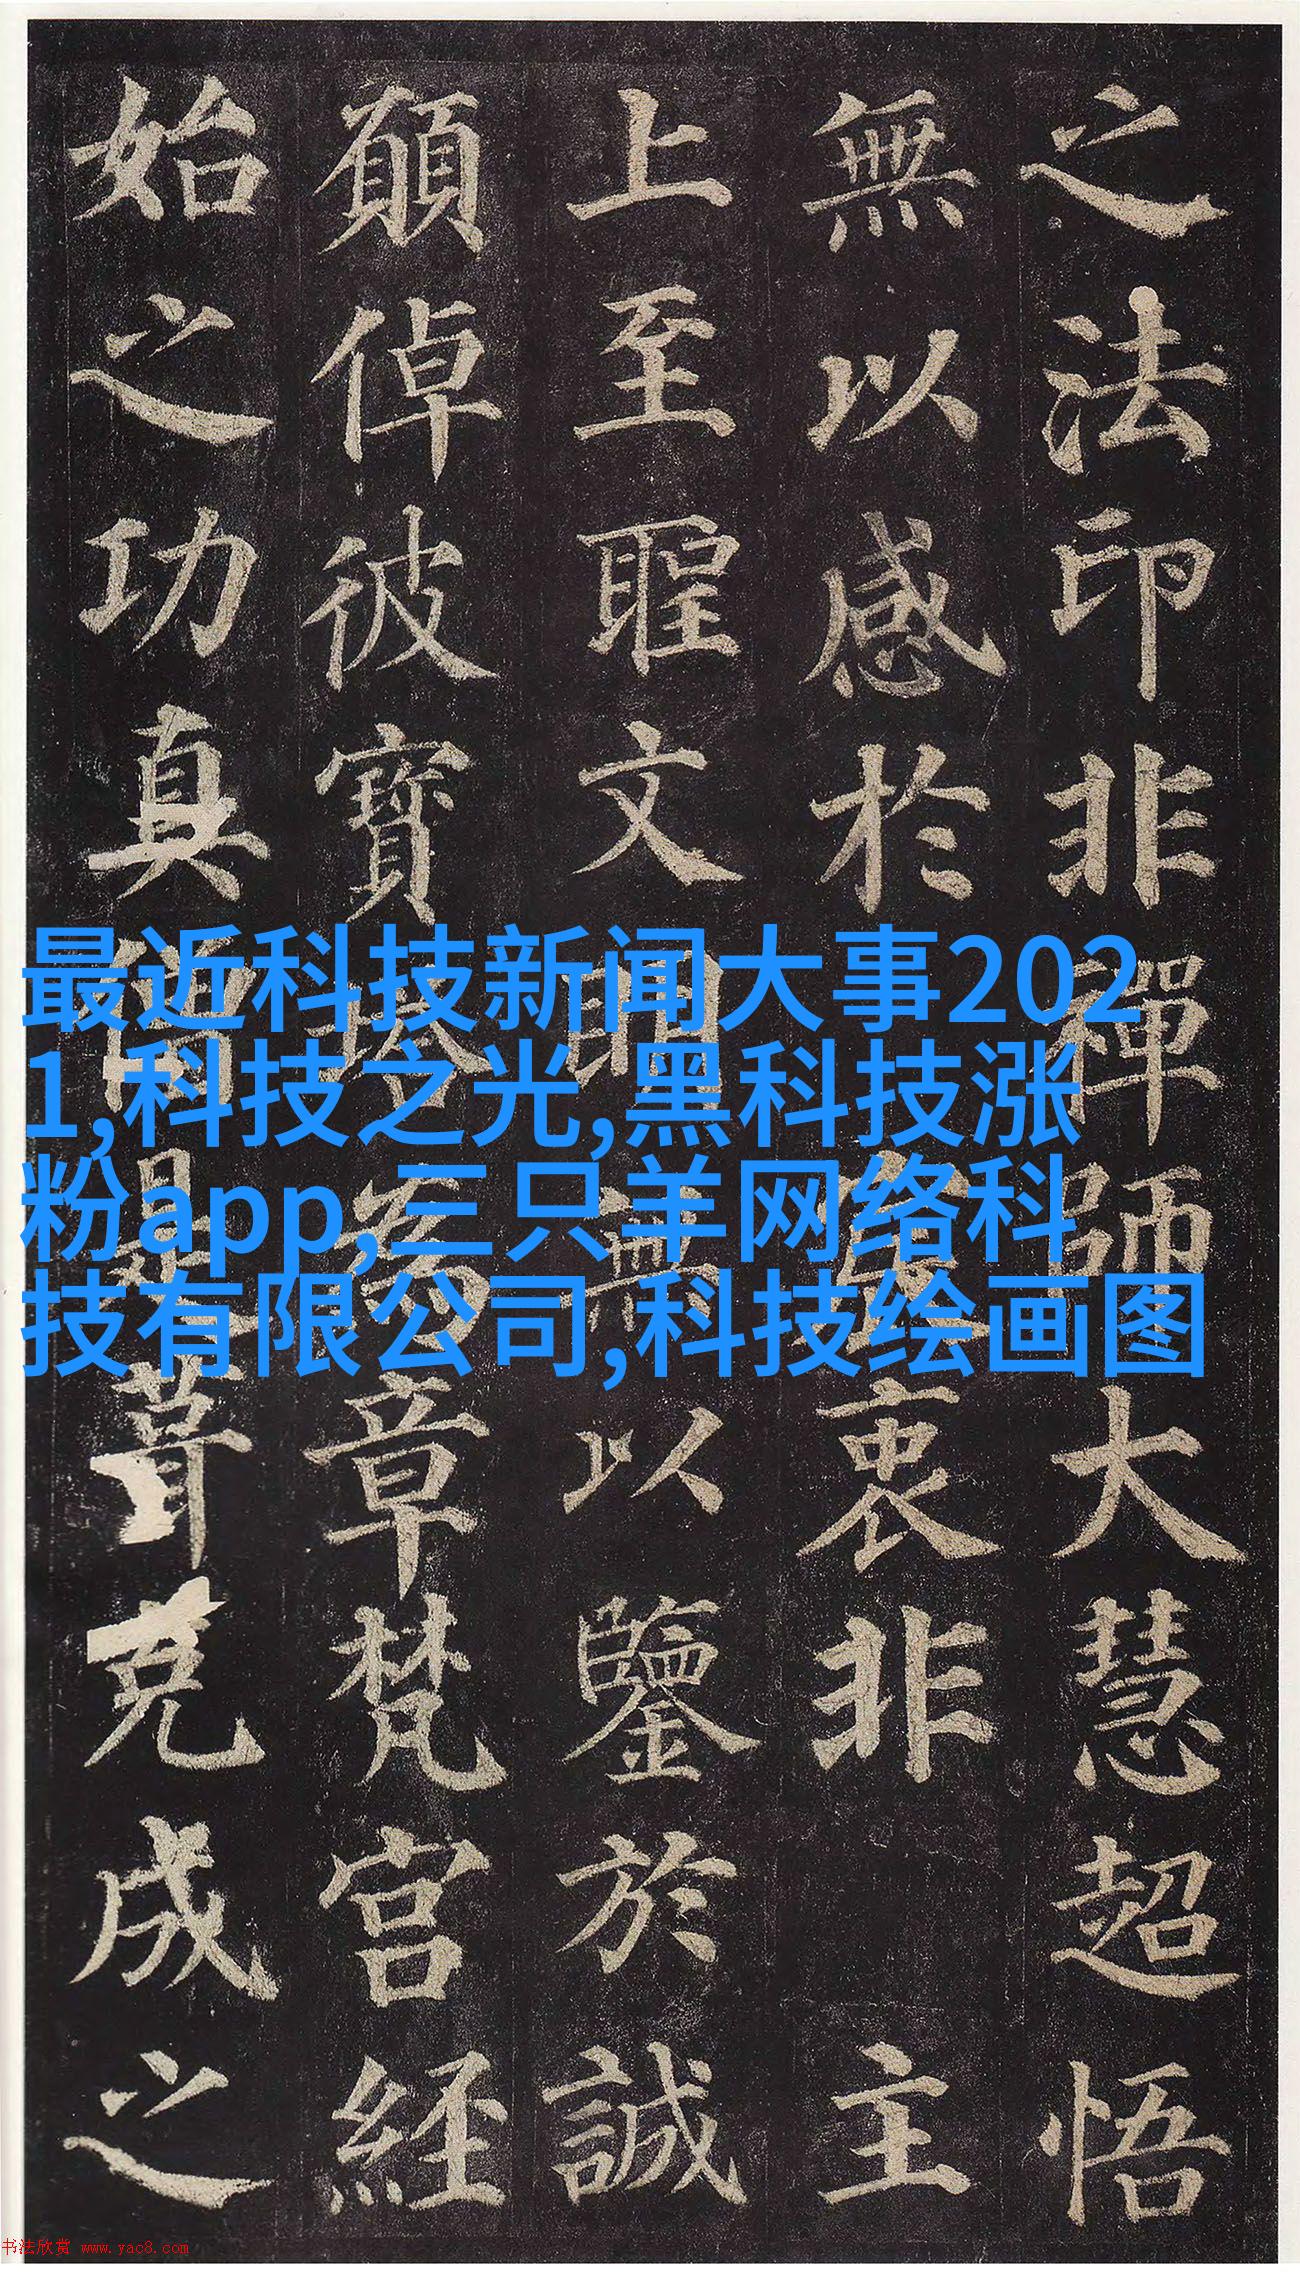 之法印非禪師大慧超悟
無以感於宸衷非主
上至聖文明無以鑒於誠
願倬彼寶塔為章梵宮經
始之功真僧是葺克成之
最近科技新闻大事202
1,科技之光,黑科技涨
粉app,三只羊网络科
技有限公司,科技绘画图
书法欣赏 www.yac8.com